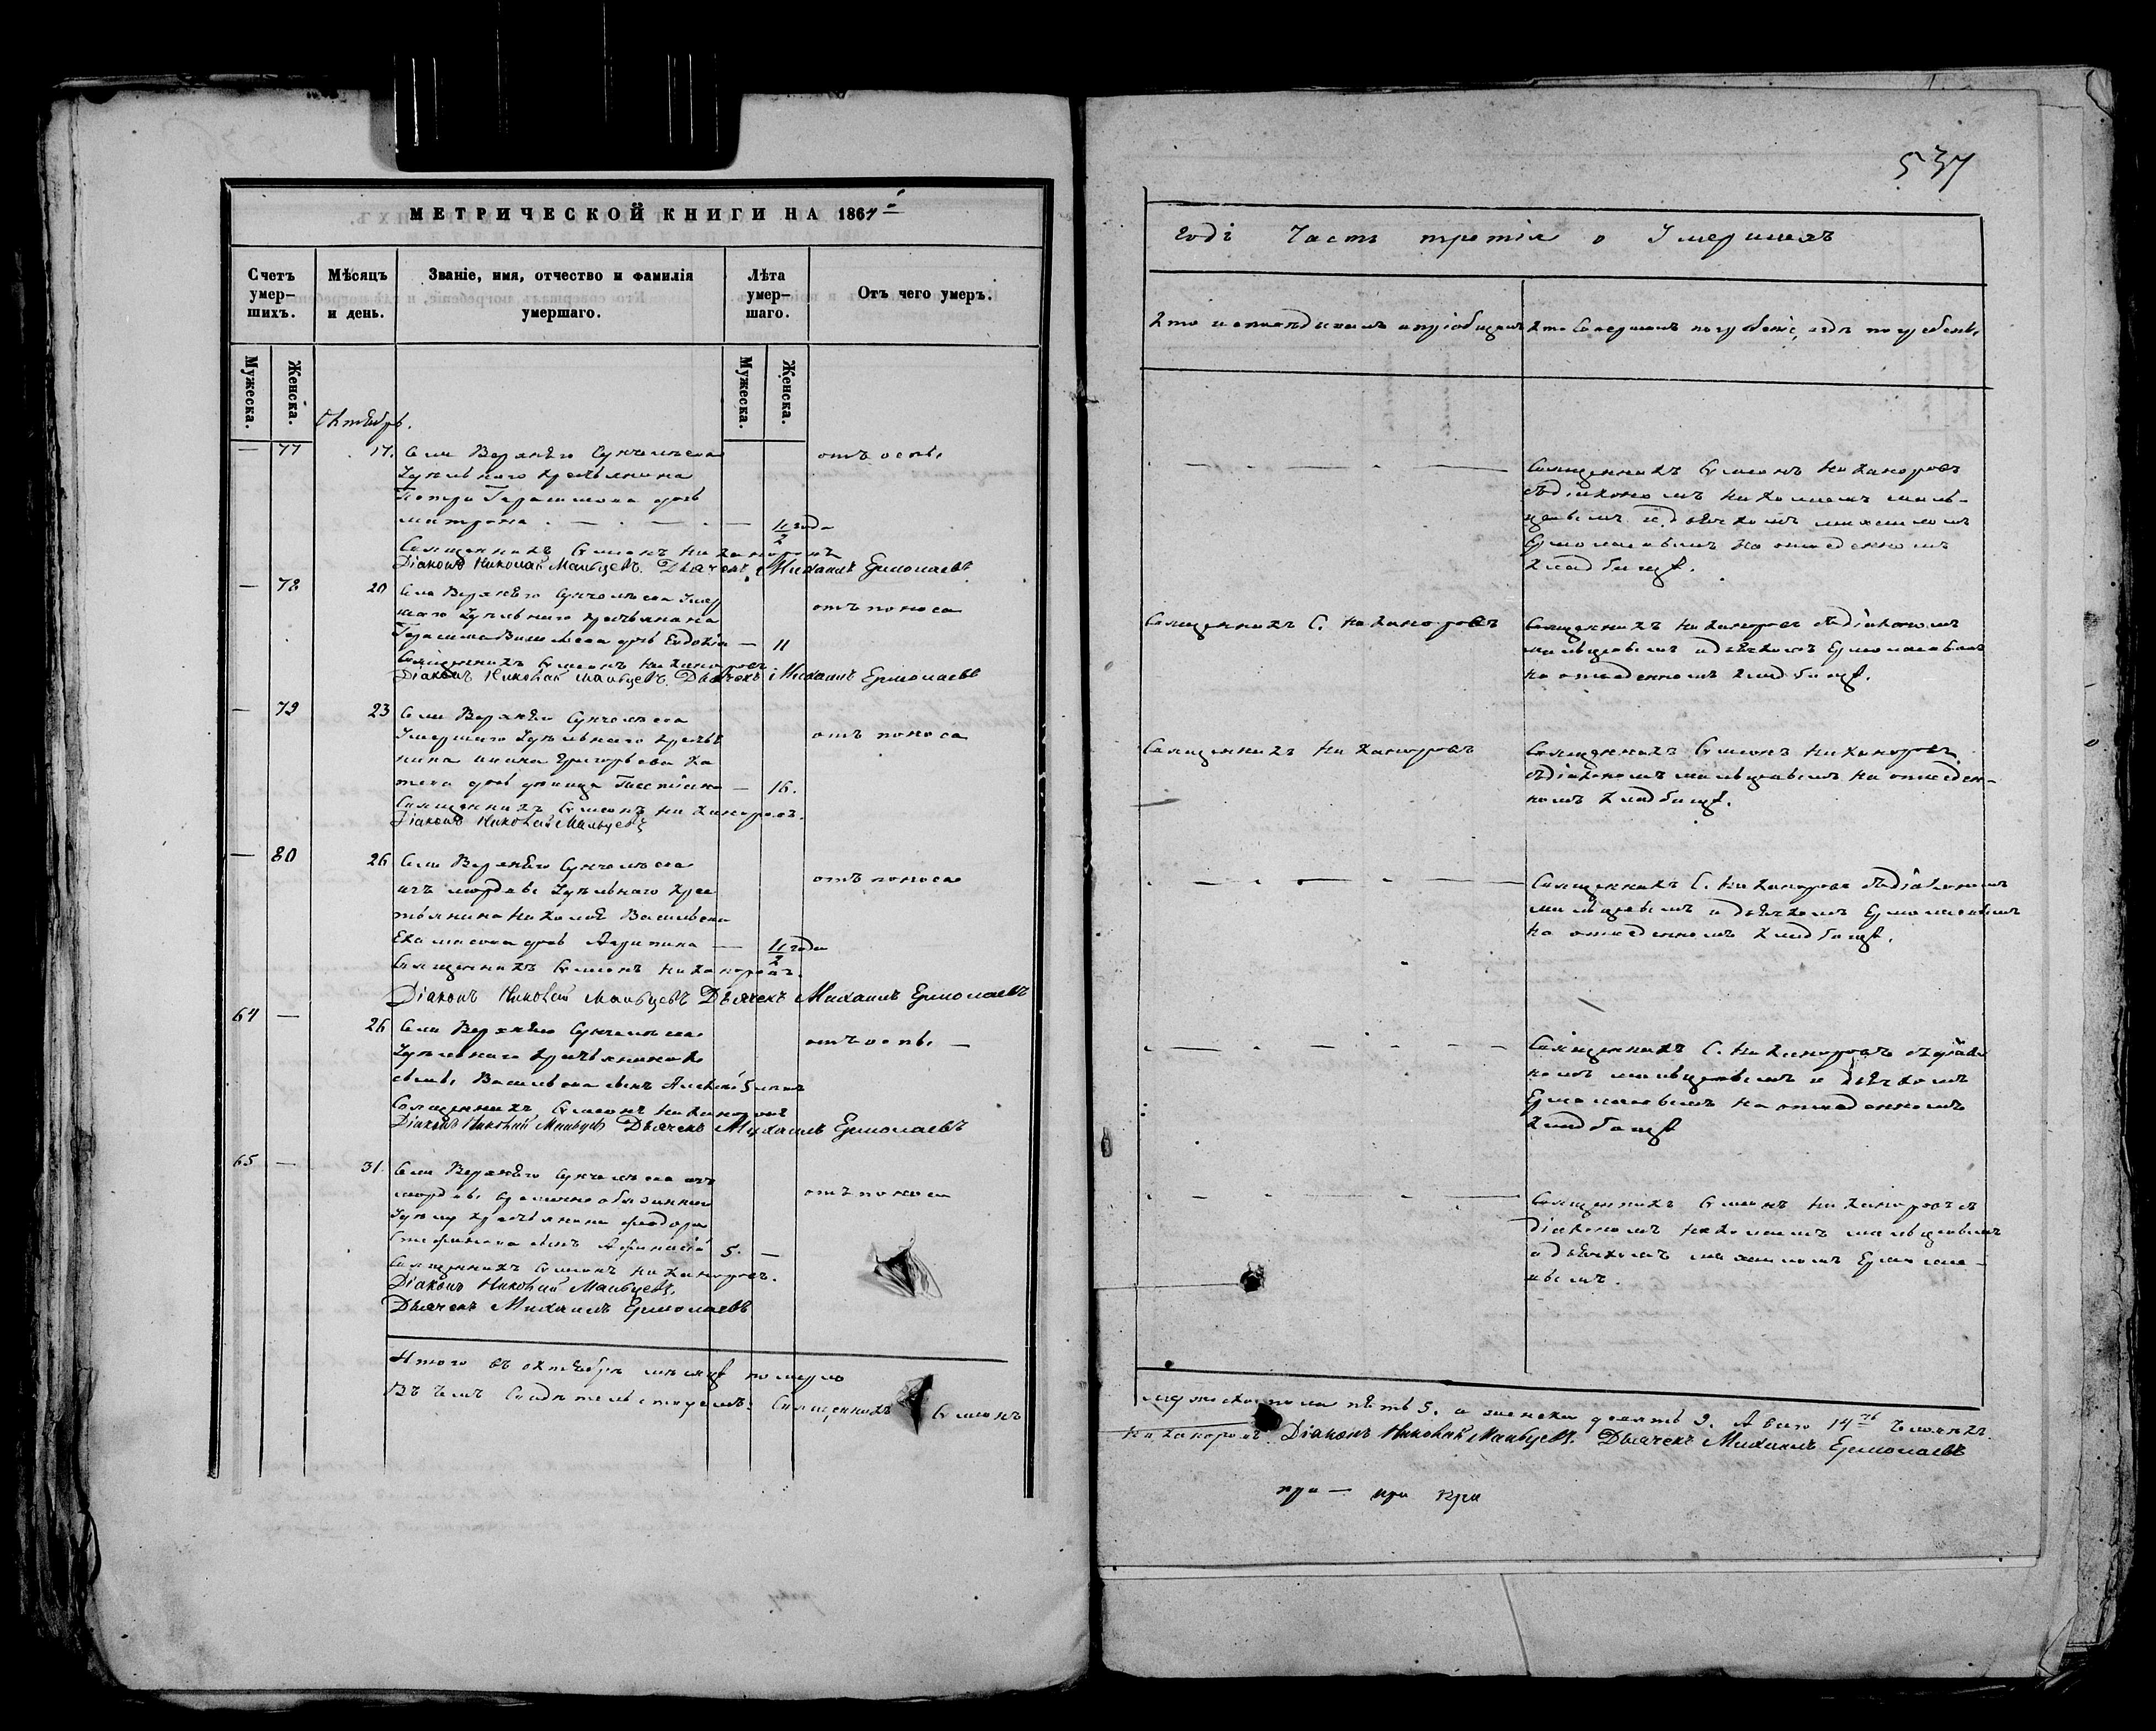 МЕТРИЧЕСКОЙ КНИГИ НА 1861й
Счетъ умер-шихъ.
Мѣсяцъ и день.
Званіе, имя, отчество и фамилія умершаго.
Лѣта умер-шаго.
Отъ чего умеръ.
Мужеска.
Женска.
Мужеска.
Женска.
Октябрь.
— 77 17. Села Верхняго
Удѣльнаго крестьянина
Петра Герасимова дочь
Матрона — 1/2 года
отъ оспы
Священникъ Симеонъ Никаноровъ
Діаконъ Николай Мальцевъ. Дьячекъ Михаилъ Ермолаевъ
— 78 20 Села Верхняго умер
шаго Удѣльнаго крестьянина
Герасима дочь Евдокія — 11
отъ поноса
Священникъ Симеонъ Никаноровъ
Діаконъ Николай Мальцевъ. Дьячекъ Михаилъ Ермолаевъ
— 79 23 Села Верхняго
Умершаго Удѣльнаго крестья
нина Григорьева
дочь дѣвица — 16.
отъ поноса
Священникъ Симеонъ Никаноровъ.
Діаконъ Николай Мальцевъ
— 80 26 Села Верхняго
изъ мордвы Удѣльнаго крес
тьянина Николая Васильева
дочь Агрипина — 1/2 года
отъ поноса
Священникъ Симеонъ Никаноровъ.
Діаконъ Николай Мальцевъ Дьячекъ Михаилъ Ермолаевъ
64 — 26 Села Верхняго
Удѣльнаго крестьянина
Васильева сынъ Алексѣй 5
отъ оспы —
Священникъ Симеонъ Никаноровъ
Діаконъ Николай Мальцевъ Дьячекъ Михаилъ Ермолаевъ
65 — 31. Села Верхняго изъ
мордвы срочно обязаннаго
Удѣлу крестьянина Федора
Стефанова сынъ Афанасій 5. —
отъ поноса
Священникъ Симеонъ Никаноровъ.
Діаконъ Николай Мальцевъ.
Дьячекъ Михаилъ Ермолаевъ
Итого въ октябрѣ мѣсяцѣ померло
Въ чемъ свидѣтельствуемъ: Священникъ Симеонъ
537
годъ Часть третія о Умершихъ
Кто исповѣдывалъ и пріобщалъ
Кто совершалъ погребеніе, и гдѣ погребены
Священникъ Симеонъ Никаноровъ
съ діакономъ Николаемъ Маль-
цевымъ и дьячкомъ Михаиломъ
Ермолаевымъ на отведенномъ
кладбищѣ.
Священникъ С. Никаноровъ
Священникъ Никаноровъ съ діакономъ
Мальцевымъ и дьячкомъ Ермолаевымъ
на отведенномъ кладбищѣ.
Священникъ Никаноровъ
Священникъ Симеонъ Никаноровъ
съ діакономъ Мальцевымъ на отведен-
номъ кладбищѣ.
Священникъ С. Никаноровъ съ діакономъ
Мальцевымъ и дьячкомъ Ермолаевымъ
на отведенномъ кладбищѣ.
Священникъ С. Никаноровъ съ діако
номъ Мальцевымъ и дьячкомъ
Ермолаевымъ на отведенномъ
кладбищѣ
Священникъ Симеонъ Никаноровъ съ
діакономъ Николаемъ Мальцевымъ
и дьячкомъ Михаиломъ Ермола-
евымъ.
мужеска пола пять 5. а женска девять 9. А всего 14ть человѣкъ.
Никаноровъ. Діаконъ Николай Мальцевъ. Дьячекъ Михаилъ Ермолаевъ
при — при при